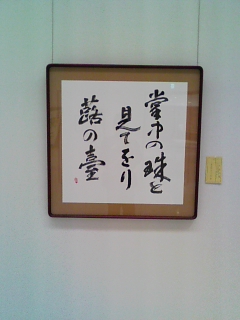 掌中の珠と
見てをり
蕗の臺